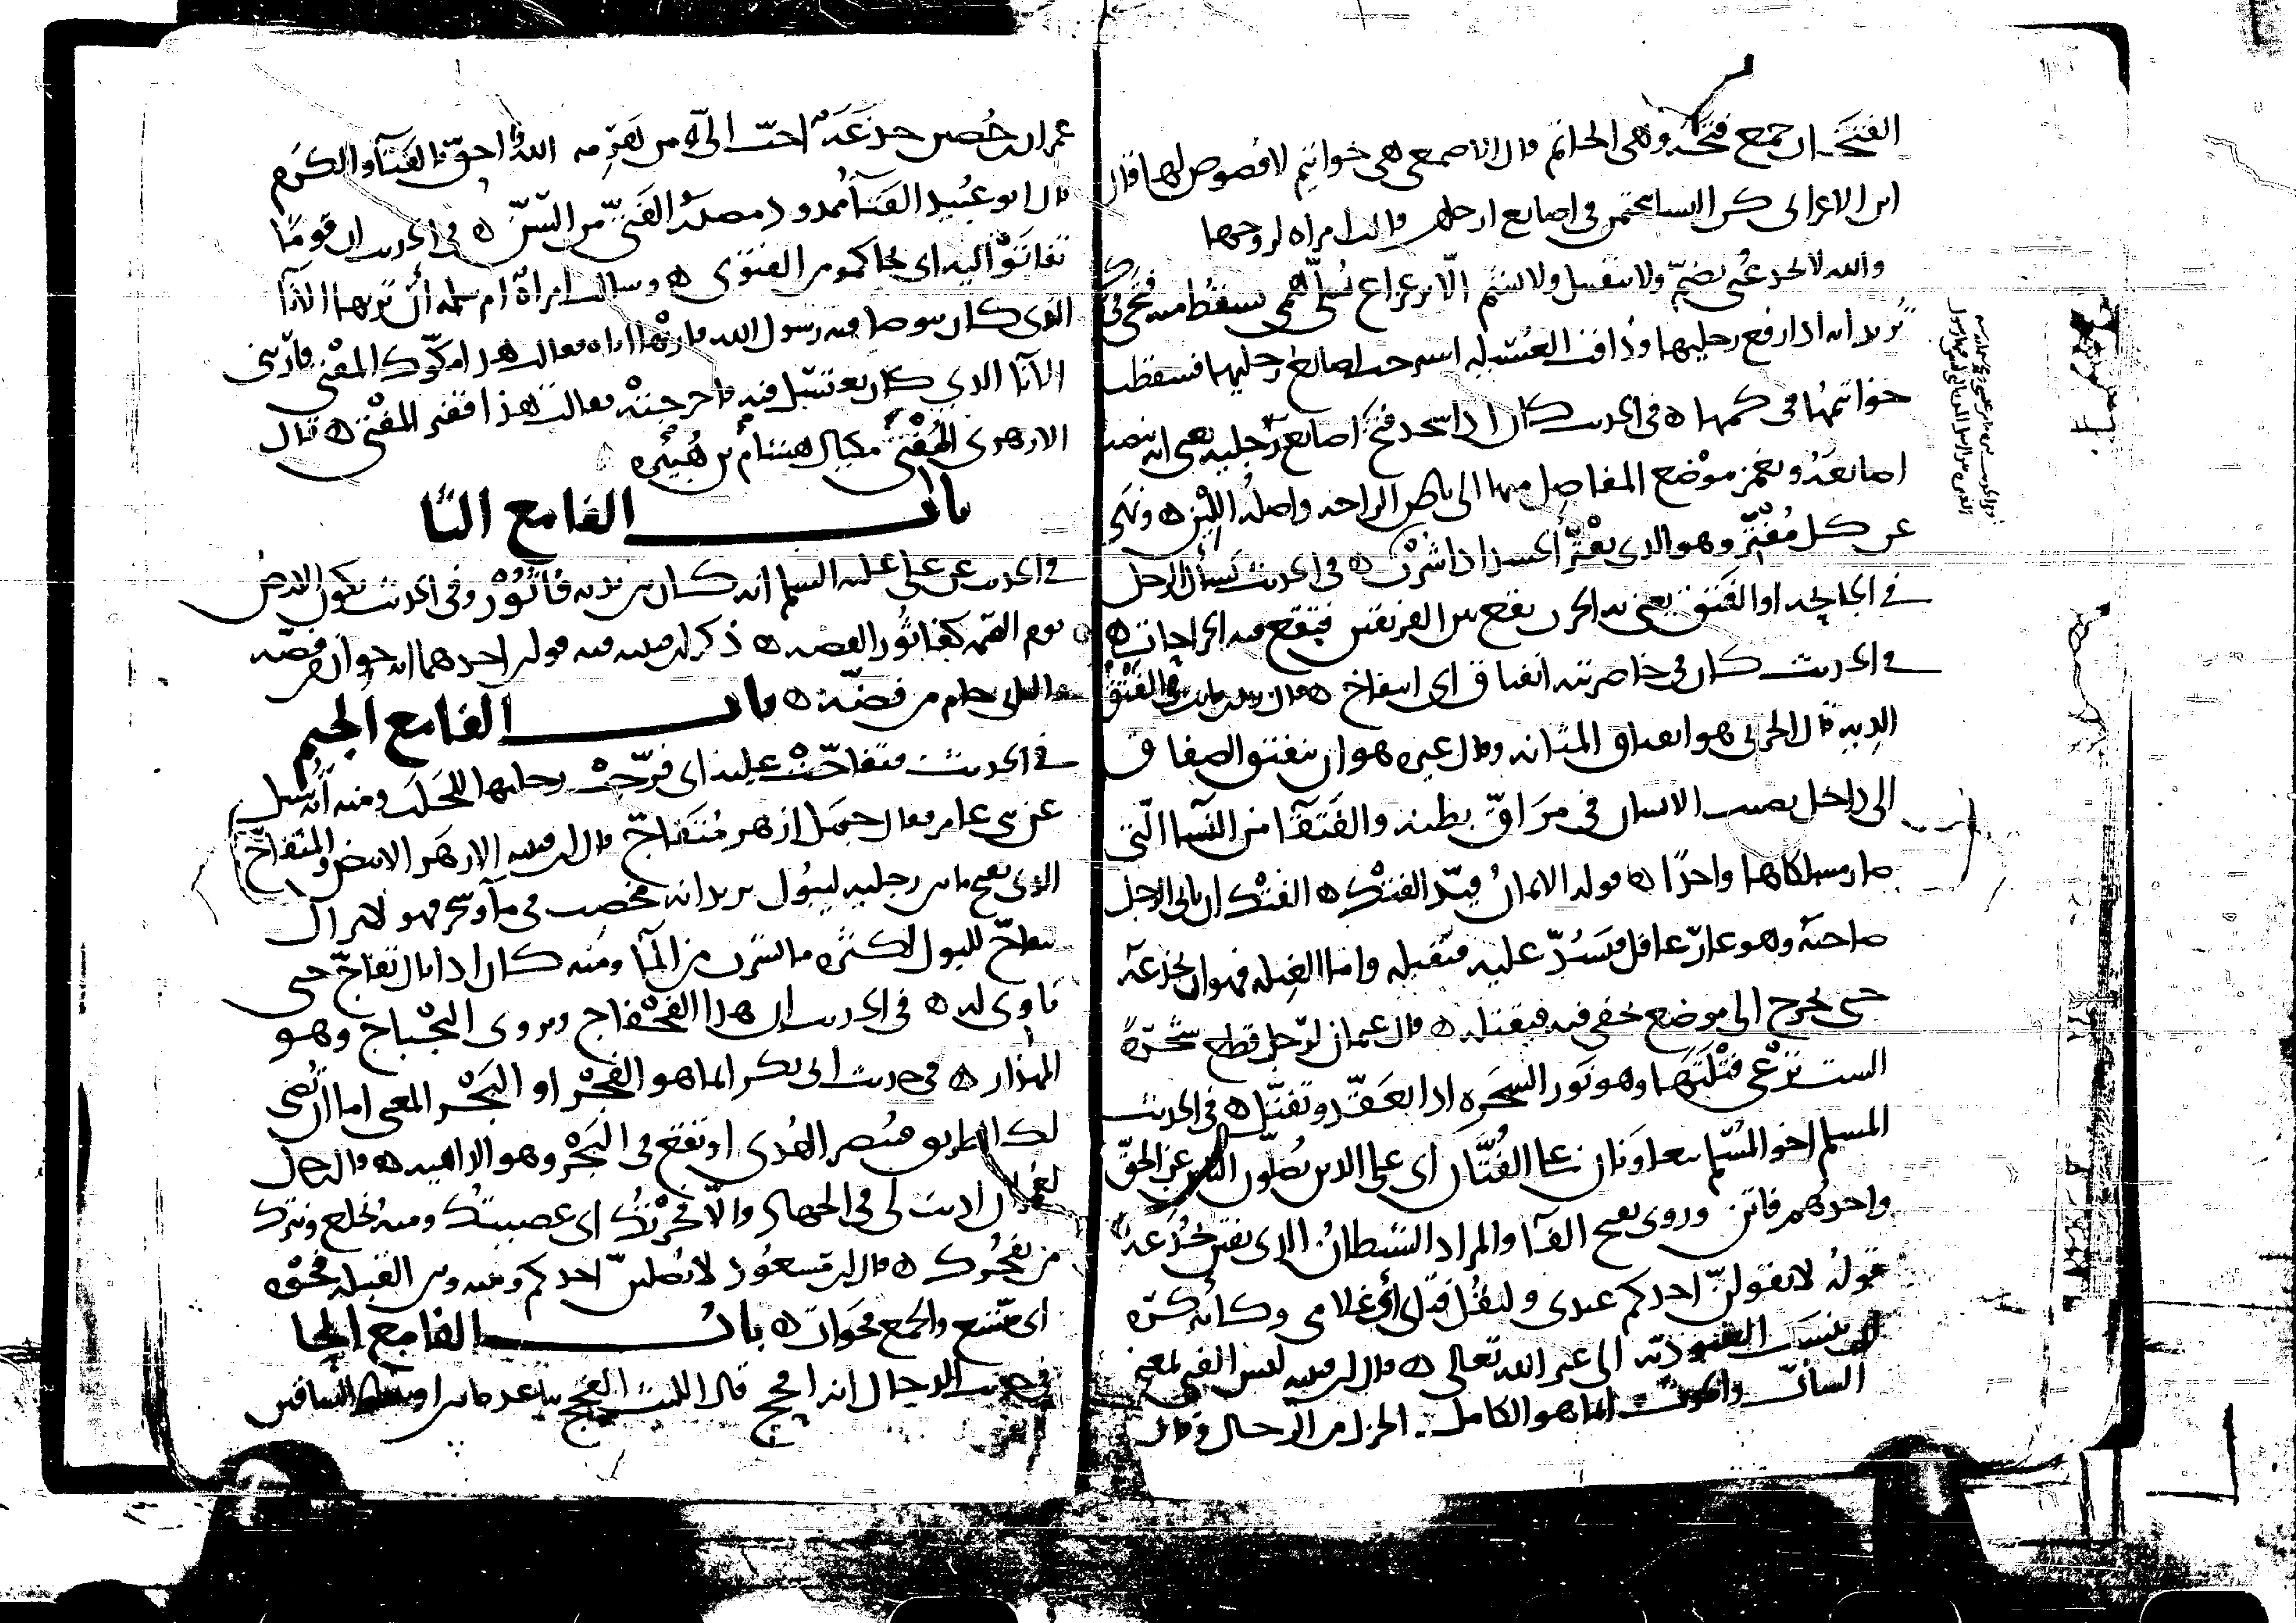 الفتخ ان جمع فتخة وهي الخواتم قال الاصمعي هي خواتيم لا فصوص لها قال
ابن الاعرابي كن النسا يتختمن في اصابع ارجلهن وقالت امراة لزوجها
والله لا تخدعني بضم ولا بتقبيل ولا بشم الا بزعزاع يسلي همي تسقط منه فتخي في كمي
تريد انه اذا رفع رجليها وذاقت العسيلة استرخت اصابع رجليها فسقطت
خواتيمها في كمها ه في الحديث كان اذا سجد فتخ اصابع رجليه يعني انه ينصب
اصابعه ويغمز موضع المفاصل منها الى باطن الراحة واصله اللين ه ونهي
عن كل مفتر وهو الذي يفتر الجسد اذا شرب ه في الحديث يسأل الرجل
في الجايحة او الفتق يعني به الحرب يقع بين الفريقين فيقع فيه الجراحات ه
في الحديث كان في خاصرتيه انفتاق اي انتفاخ ه وقال زيد بن ثابت في الفتق
الدية قال الحربي هو انفتاق المثانة وقال غيره هو ان ينفتق الصفاق
الى داخل يصيب الانسان في مراق بطنه والفتقا من النسا التي
صار مسلكاها واحدا ه قوله الايمان قيد الفتك ه الفتك ان ياتي الرجل
صاحبه وهو غار غافل فيشد عليه فيقتله واما الغيلة فهو ان يخدعه
حتى يخرج الى موضع خفي فيه فيقتله ه قال عثمان لرجل قطع شجرة
الست ترعى فتلتها وهو نور الشجرة اذا تعقد وتفتل ه في الحديث
المسلم اخو المسلم يتعاونان على الفتان اي على الذين يضلون الناس عن الحق
واحدهم فاتن وروي بفتح الفا والمراد الشيطان الذي يفتن بخدعه
قوله لا يقولن احدكم عبدي وليقل فتاي اي غلامي وكانه كره
ان ينسب العبودية الى غير الله تعالى ه قال ابن قتيبة ليس الفتى بمعنى
الشاب والحدث انما هو الكامل الجزل من الرجال وقال
عمران بن حصين جذعة احب الي من هرمة الله احق بالفتا والكرم
قال ابو عبيد الفتا ممدود مصدر الفتي من السن ه في الحديث ان قوما
تفاتوا اليه اي تحاكموا من الفتوى ه وسالت امراة ام سلمة ان تريها الانا
الذي كان يتوضا منه رسول الله فارتها اياه فقالت هذا مكوك المفتي فارني
الانا الذي كان يغتسل فيه فاخرجته فقالت هذا قفيز المفتي ه قال
الازهري المفتي مكيال هشام بن هبيرة
باب الفا مع الثا
في الحديث عن علي عليه السلم انه كان بين يديه فاثور وفي الحديث تكون الارض
يوم القيمة كفاثور الفضة ه ذكر ابن قتيبة فيه قولين احدهما انه خوان من فضة
والثاني جام من فضة ه باب الفا مع الجيم
في الحديث فتفاجت عليه اي فرجت رجليها للحلب ومنه انه سئل
عن بني عامر فقال جمل ازهر متفاج قال ابن قتيبة الازهر الابيض والمتفاج
الذي يفتح ما بين رجليه ليبول يريد انه مخصب في ما وشجر فهو لا يزال
يتفاج للبول لكثرة ما يشرب من الما ومنه كان اذا بال تفاج حتى
ناوي له ه في الحديث ان هذا الفجفاج ويروى البجباج وهو
المهذار ه في حديث ابي بكر انما هو الفجر او البجر المعنى اما ان يضي
لك الطريق فتبصر الهدى او تقع في البجر وهو الداهية ه وقال رجل
لعمر ان اذنت لي في الجهاد والا فجرتك اي عصيتك ومنه نخلع ونترك
من يفجرك ه قال ابن مسعود لا يصلين احدكم وبينه وبين القبلة فجوة
اي متسع والجمع فجوات ه باب الفا مع الحا
في حديث الدجال انه افحج قال الليث الفحج تباعد ما بين اوساط الساقين